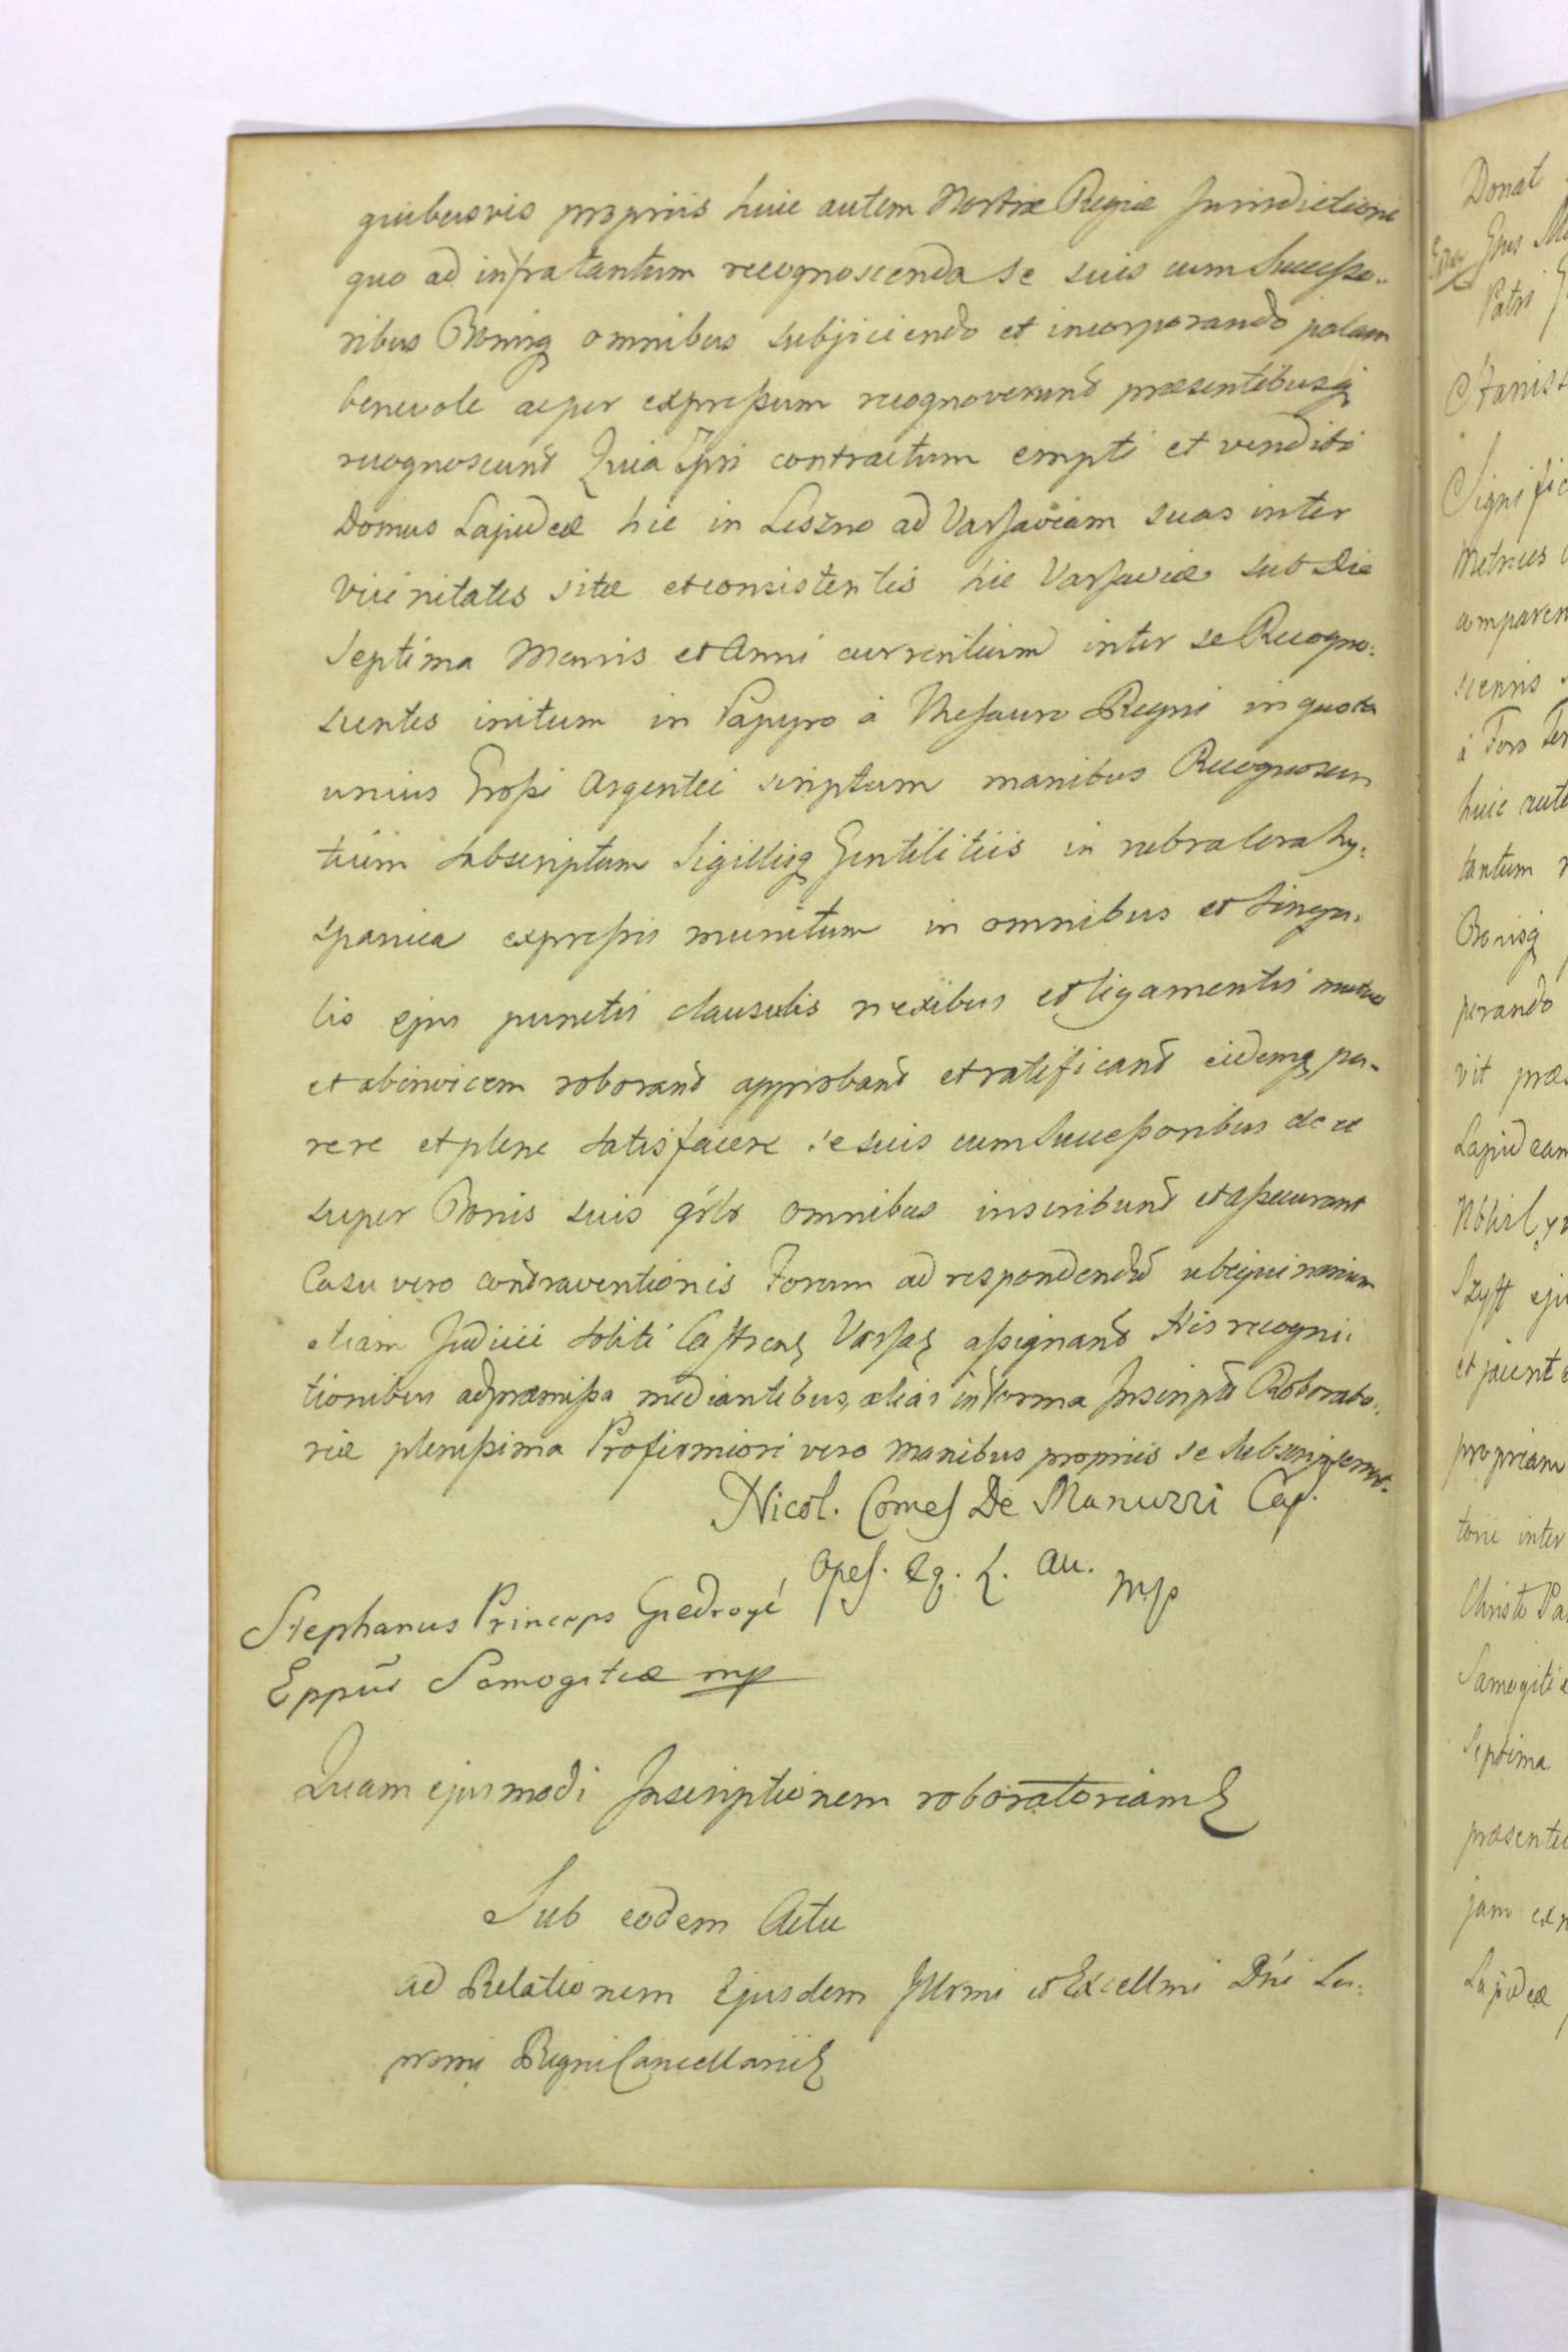 quibusvis propriis huic autem Nostræ Regiæ Jurisdictioni
quo ad infra tantum recognoscenda se suis cum Succeſso-
ribus Bonisq omnibus subjiciendo et incorporando palam
benevole ac per expreſsum recognoverunt præsentibusq
recognoscunt Quia Ipsi contractum empti et venditi
Domus Lapideæ hic in Leszno ad Varsaviam suas inter
Vicinitates sitæ et consistentis hic Varsaviæ sub Die
Septima Mensis et Anni currentium inter se Recogno:
scentes initum in Papyro à Thesauro Regni in quota
unius Groſsi Argentei scriptum manibus Recognoscen
tium subscriptum Sigillisq Gentilitiis in rubra cera hy:
spanica expreſsis munitum in omnibus et singu-
lis ejus punctis clausulis nexibus et ligamentis mutuo
et abinvicem roborant approbant et ratificant eidemq pa-
rere et plene satisfacere se suis cum Succeſsoribus de et
super Bonis suis grlr omnibus inscribunt et aſsecurant
Casu vero contraventionis Forum ad respondendũ ubiquinarium
etiam Judicii soliti Castrens Varsas aſsignant His recogni:
tionibus ad præmiſsa mediantibus, alias in forma Inscript Roborato:
riæ pleniſsima Pro firmiori vero Manibus propriis se subscripserunt.
Nicol. Comes De Manuzzi Cap.
Opes. Eq. L. Au. mp
Stephanus Princeps Giedroyć
Eppũs Samogitiæ mp
Quam ejusmodi Inscriptionem roboratoriam
Sub eodem Actu
ad Relationem Ejusdem Illrmi et Excellmi Dni Su:
premi Regni Cancellarii
Donat
Ejus
Patri
Stanisl
Signific
Metrices
comparen
scienris
à Foro Ter
huic aute
tantum
Bonisq
porando
vit præ
Lapidean
Szyft eju
et jacent
propriam
torii inter
Christo Pa
Samogitiæ
Septima
præsenti
jam
Lapideæ